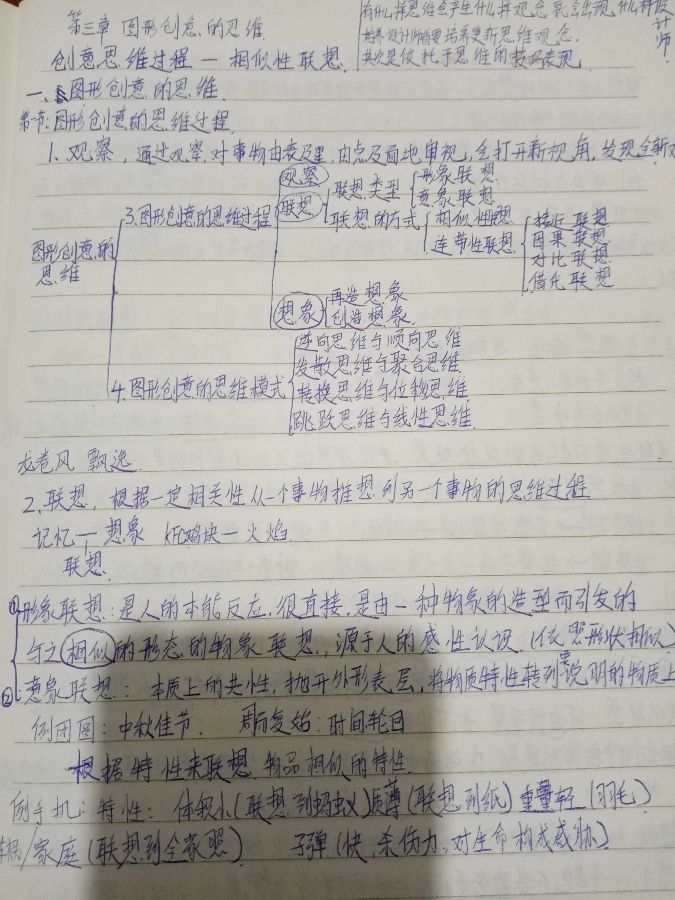 第三章 图形创意的思维
有什么样思维会产生什么样观念就会出现什么样设计师
培养设计师需要培养更新思维观念
其次是依托于思维的技巧表现
创意思维过程一相似性联想
一、图形创意的思维
第一节:图形创意的思维过程
1.观察,通过观察对事物由表及里,由点及面地审视,会打开新视角,发现全新
图形创意的思维
3.图形创意的思维过程
观察
联想
联想类型
形象联想
意象联想
联想的方式
相似性联想
连带性联想
接近联想
因果联想
对比联想
借代联想
想象
再造想象
创造想象
4.图形创意的思维模式
逆向思维与顺向思维
发散思维与聚合思维
转换思维与位移思维
跳跃思维与线性思维
龙卷风 飘逸
2.联想,根据一定相关性从一个事物推想到另一个事物的思维过程
记忆一想象 KFC鸡块一火焰
联想
①形象联想:是人的本能反应,很直接,是由一种物象的造型而引发的
与之相似的形态的物象联想,源于人的感性认识(依 形状相似)
②意象联想:本质上的共性,抛开外形表层,将物质特性转到需要说明的物质上
例团圆:中秋佳节 周而复始:时间轮回
根据特性来联想 物品相似的特性
例手机:特性:体较小(联想到蚂蚁)质薄(联想到纸)重量轻(羽毛)
/家庭(联想到全家照) 子弹(快,杀伤力,对生命构成威胁)